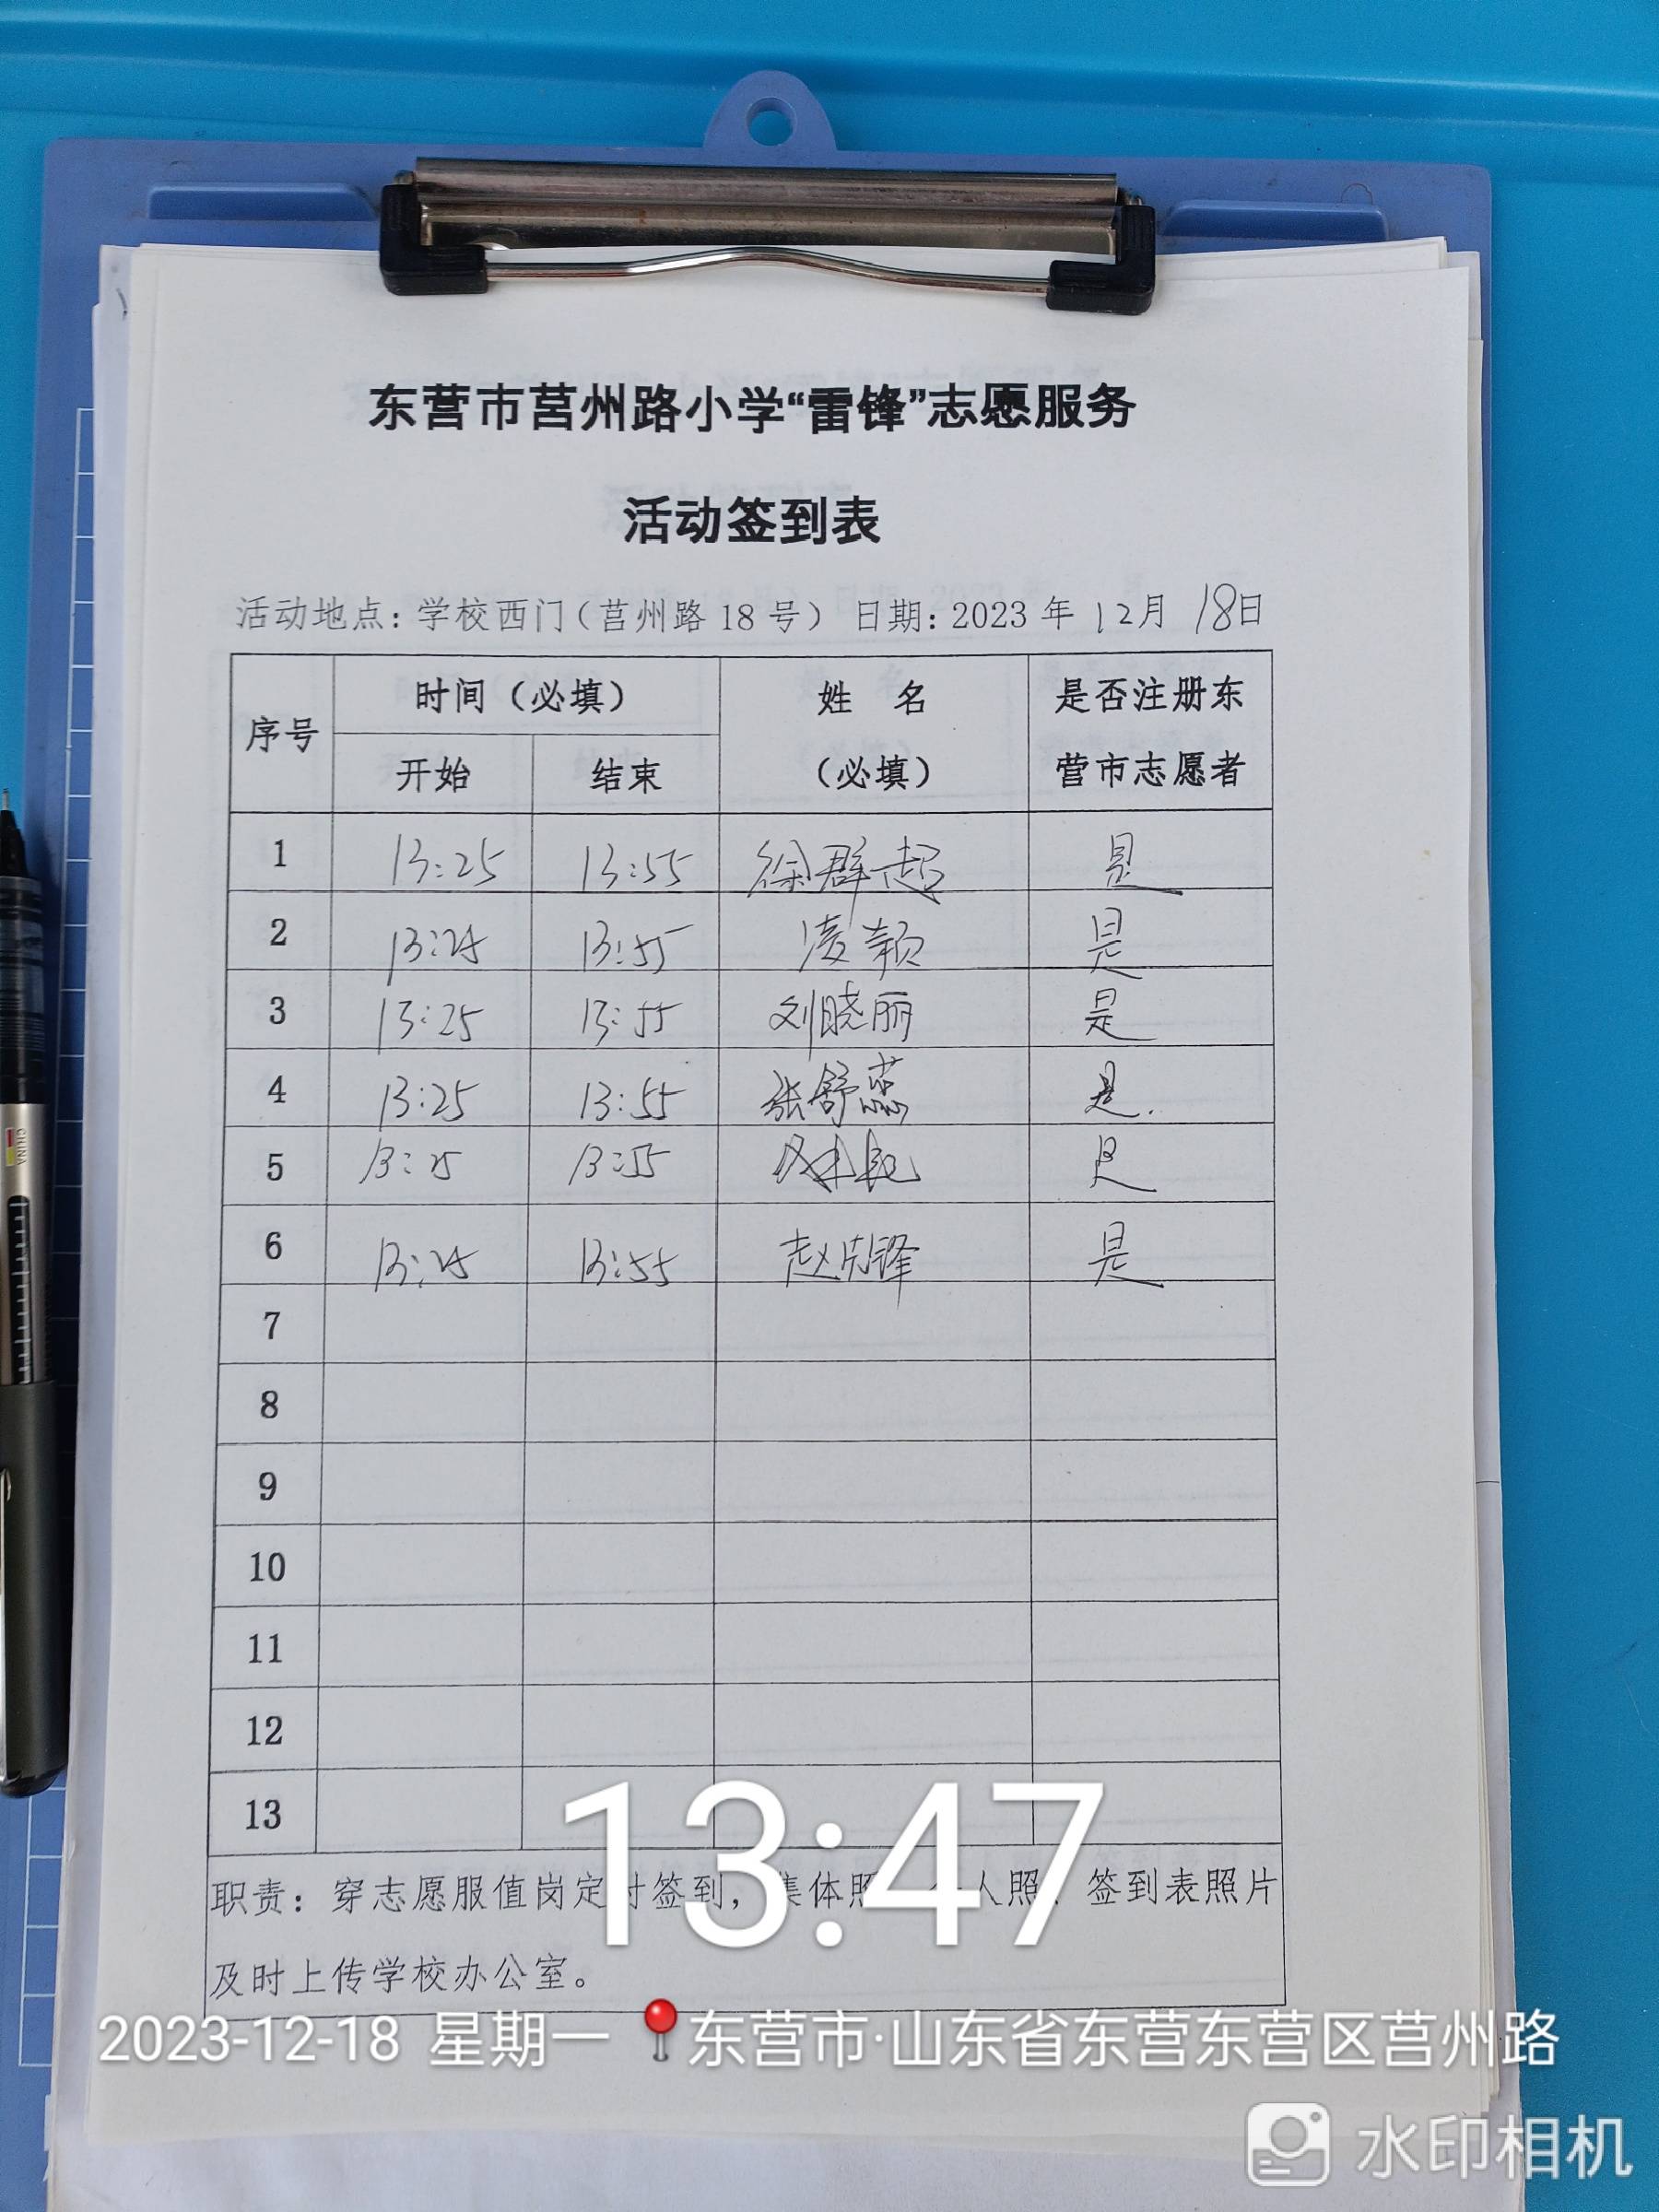 东营市莒州路小学“雷锋”志愿服务
活动签到表
活动地点：学校西门（莒州路 18 号） 日期：2023 年 12月 18日
序号 时间（必填） 姓 名（必填） 是否注册东营市志愿者
开始 结束
1 13:25 13:55 徐群超 是
2 13:25 13:55 凌颖 是
3 13:25 13:55 刘晓丽 是
4 13:25 13:55 张舒蕊 是.
5 13:25 13:55 是
6 13:25 13:55 赵先锋 是
7
8
9
10
11
12
13
职责：穿志愿服值岗定时签到，集体照、个人照、签到表照片
及时上传学校办公室。
13:47
2023-12-18 星期一 东营市·山东省东营东营区莒州路
水印相机
CHINA